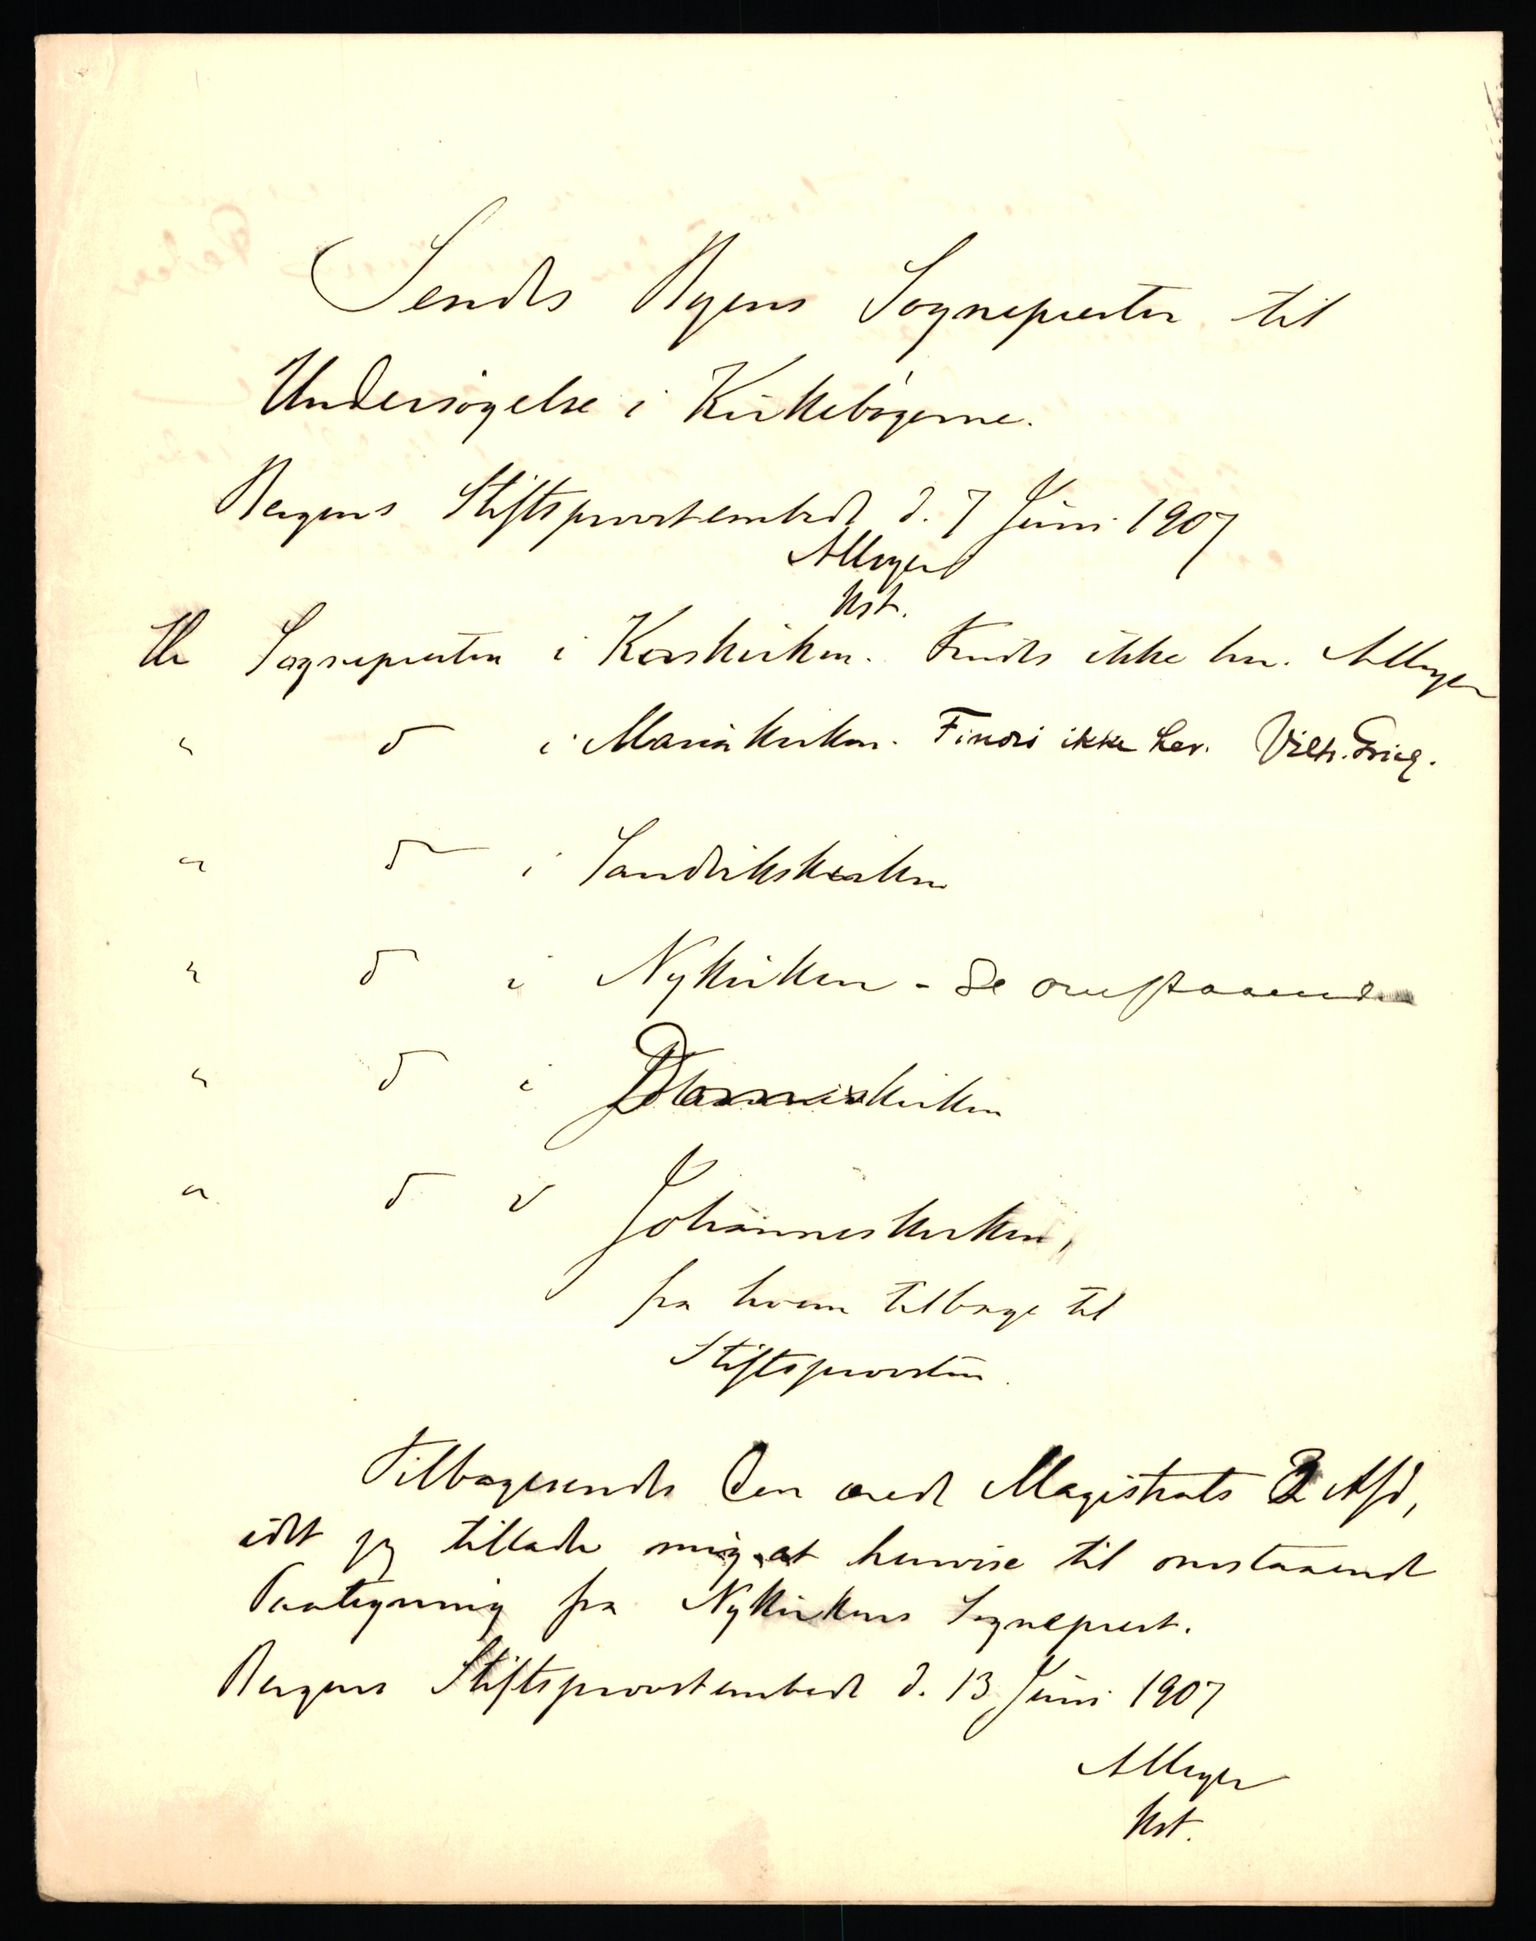 Sendes Byens Sogneprester til
Undersøgelse i Kirkebøgerne.
Bergens Stiftsprovstembede d. 7 Juni 1907
AMeyer
kst.
Til Sognepresten i Korskirken. Findes ikke her. AMeyer
" d i Mariakirken. Findes ikke her. Vilh. Grieg.
" d i Sandvikskirken
" d i Nykirken - Se omstaaende
" d i Domkirken
" d i Johanneskirken,
fra hvem tilbage til
Stiftsprovsten.
Tilbagesendes den ærede Magistrats 2 Afd,
idet jeg tillader mig at henvise til omstaaende
Paategning fra Nykirkens Sogneprest.
Bergens Stiftsprovstembede d. 13 Juni 1907
AMeyer
kst.